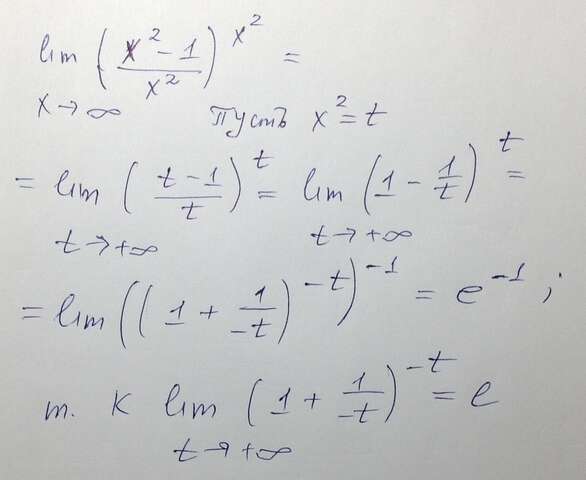 lim ( (x² - 1) / x² )^x² =
x → ∞   Пусть x² = t
= lim ( (t - 1) / t )^t = lim ( 1 - 1/t )^t =
t → +∞   t → +∞
= lim ( ( 1 + 1/-t )^-t )^-1 = e^-1 ;
т. к lim ( 1 + 1/-t )^-t = e
t → +∞